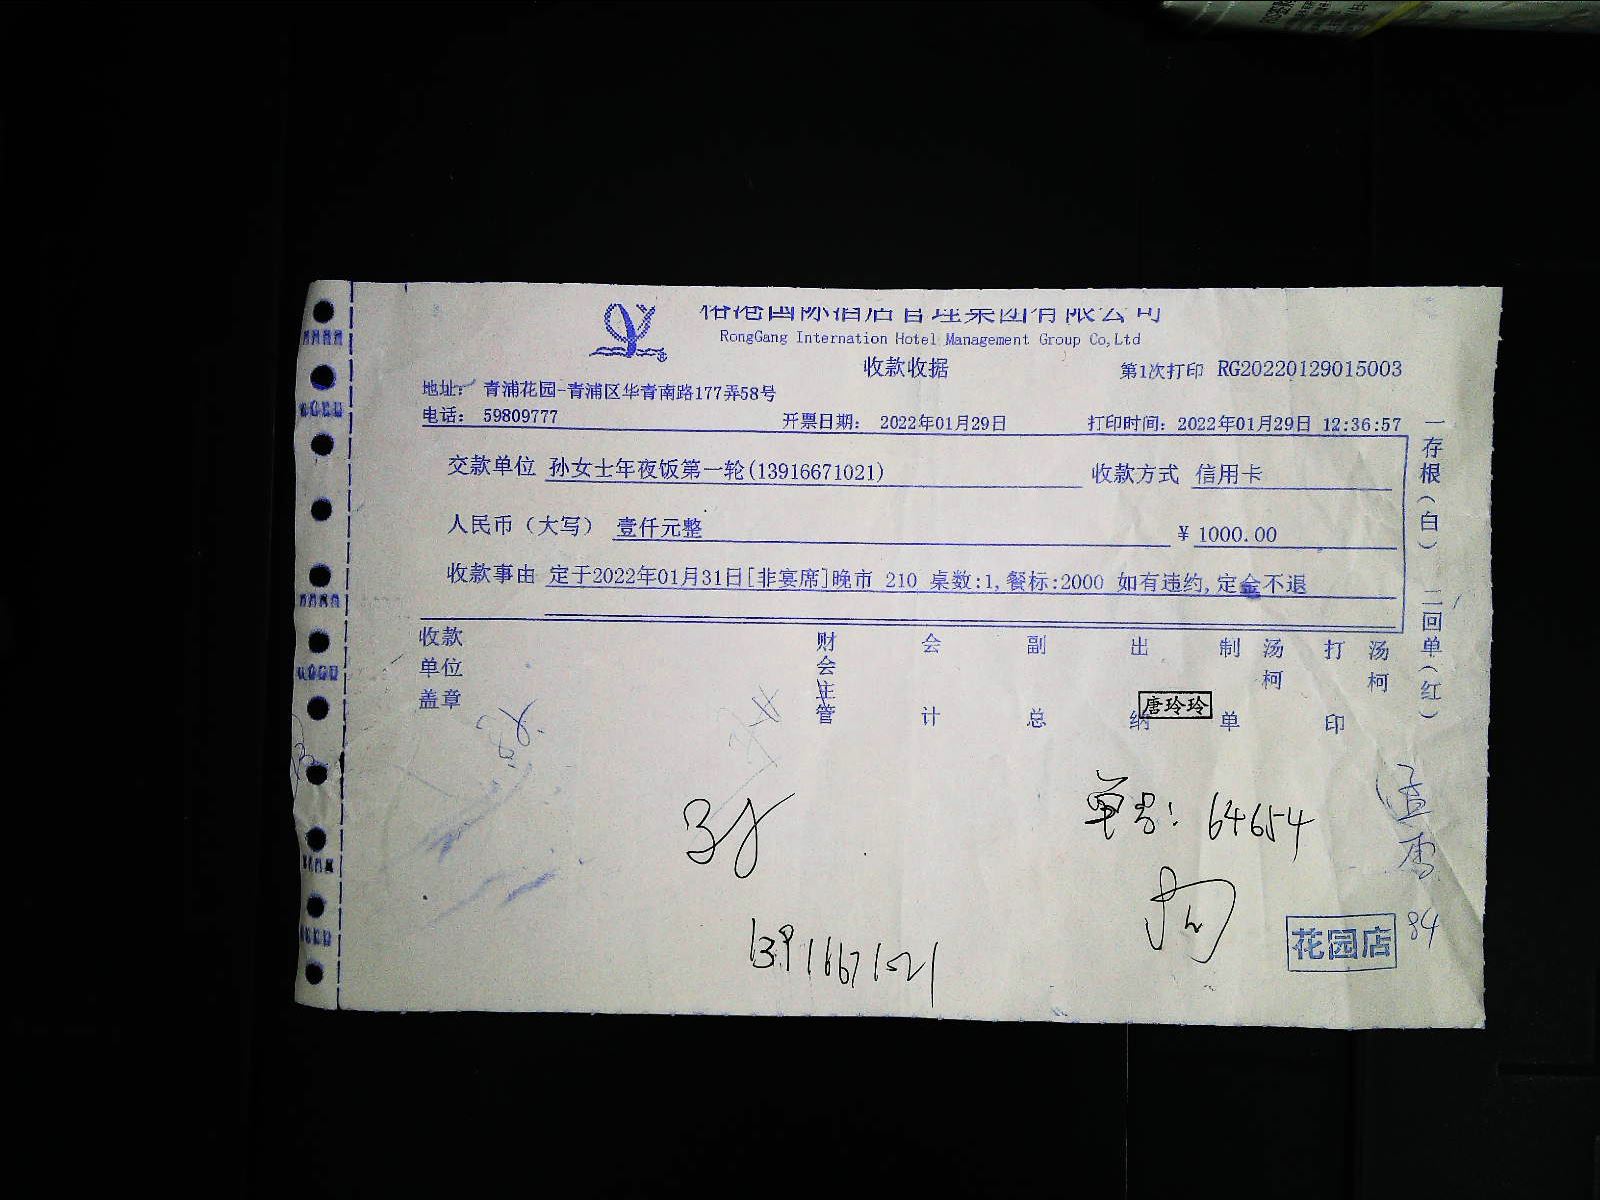 榕港国际酒店管理集团有限公司
RongGang Internation Hotel Management Group Co,Ltd
收款收据
第1次打印 RG20220129015003
地址: 青浦花园-青浦区华青南路177弄58号
电话: 59809777 开票日期: 2022年01月29日 打印时间: 2022年01月29日 12:36:57
交款单位 孙女士年夜饭第一轮(13916671021) 收款方式 信用卡
人民币(大写) 壹仟元整 ¥ 1000.00
收款事由 定于2022年01月31日[非宴席]晚市 210 桌数:1,餐标:2000 如有违约,定金不退
一存根(白) 二回单(红)
收款单位盖章 财会主管 会计 副总 出纳 制单 汤柯 打印 汤柯
唐玲玲
单号: 64654
13916671021
花园店
84